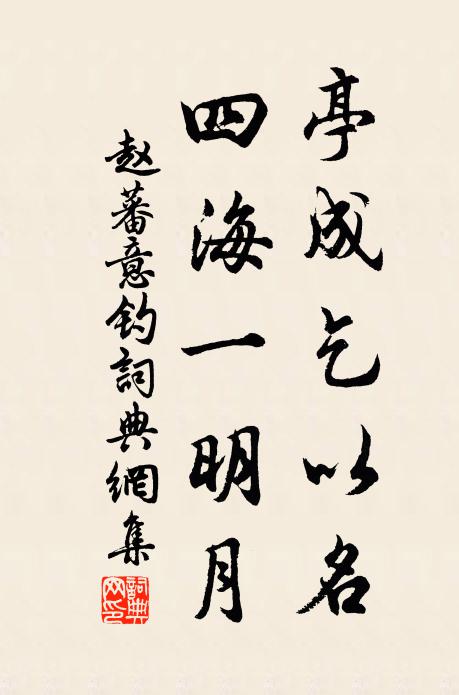 亭成乞以名
四海一明月
赵蕃意钓詞典網集
詞典网印